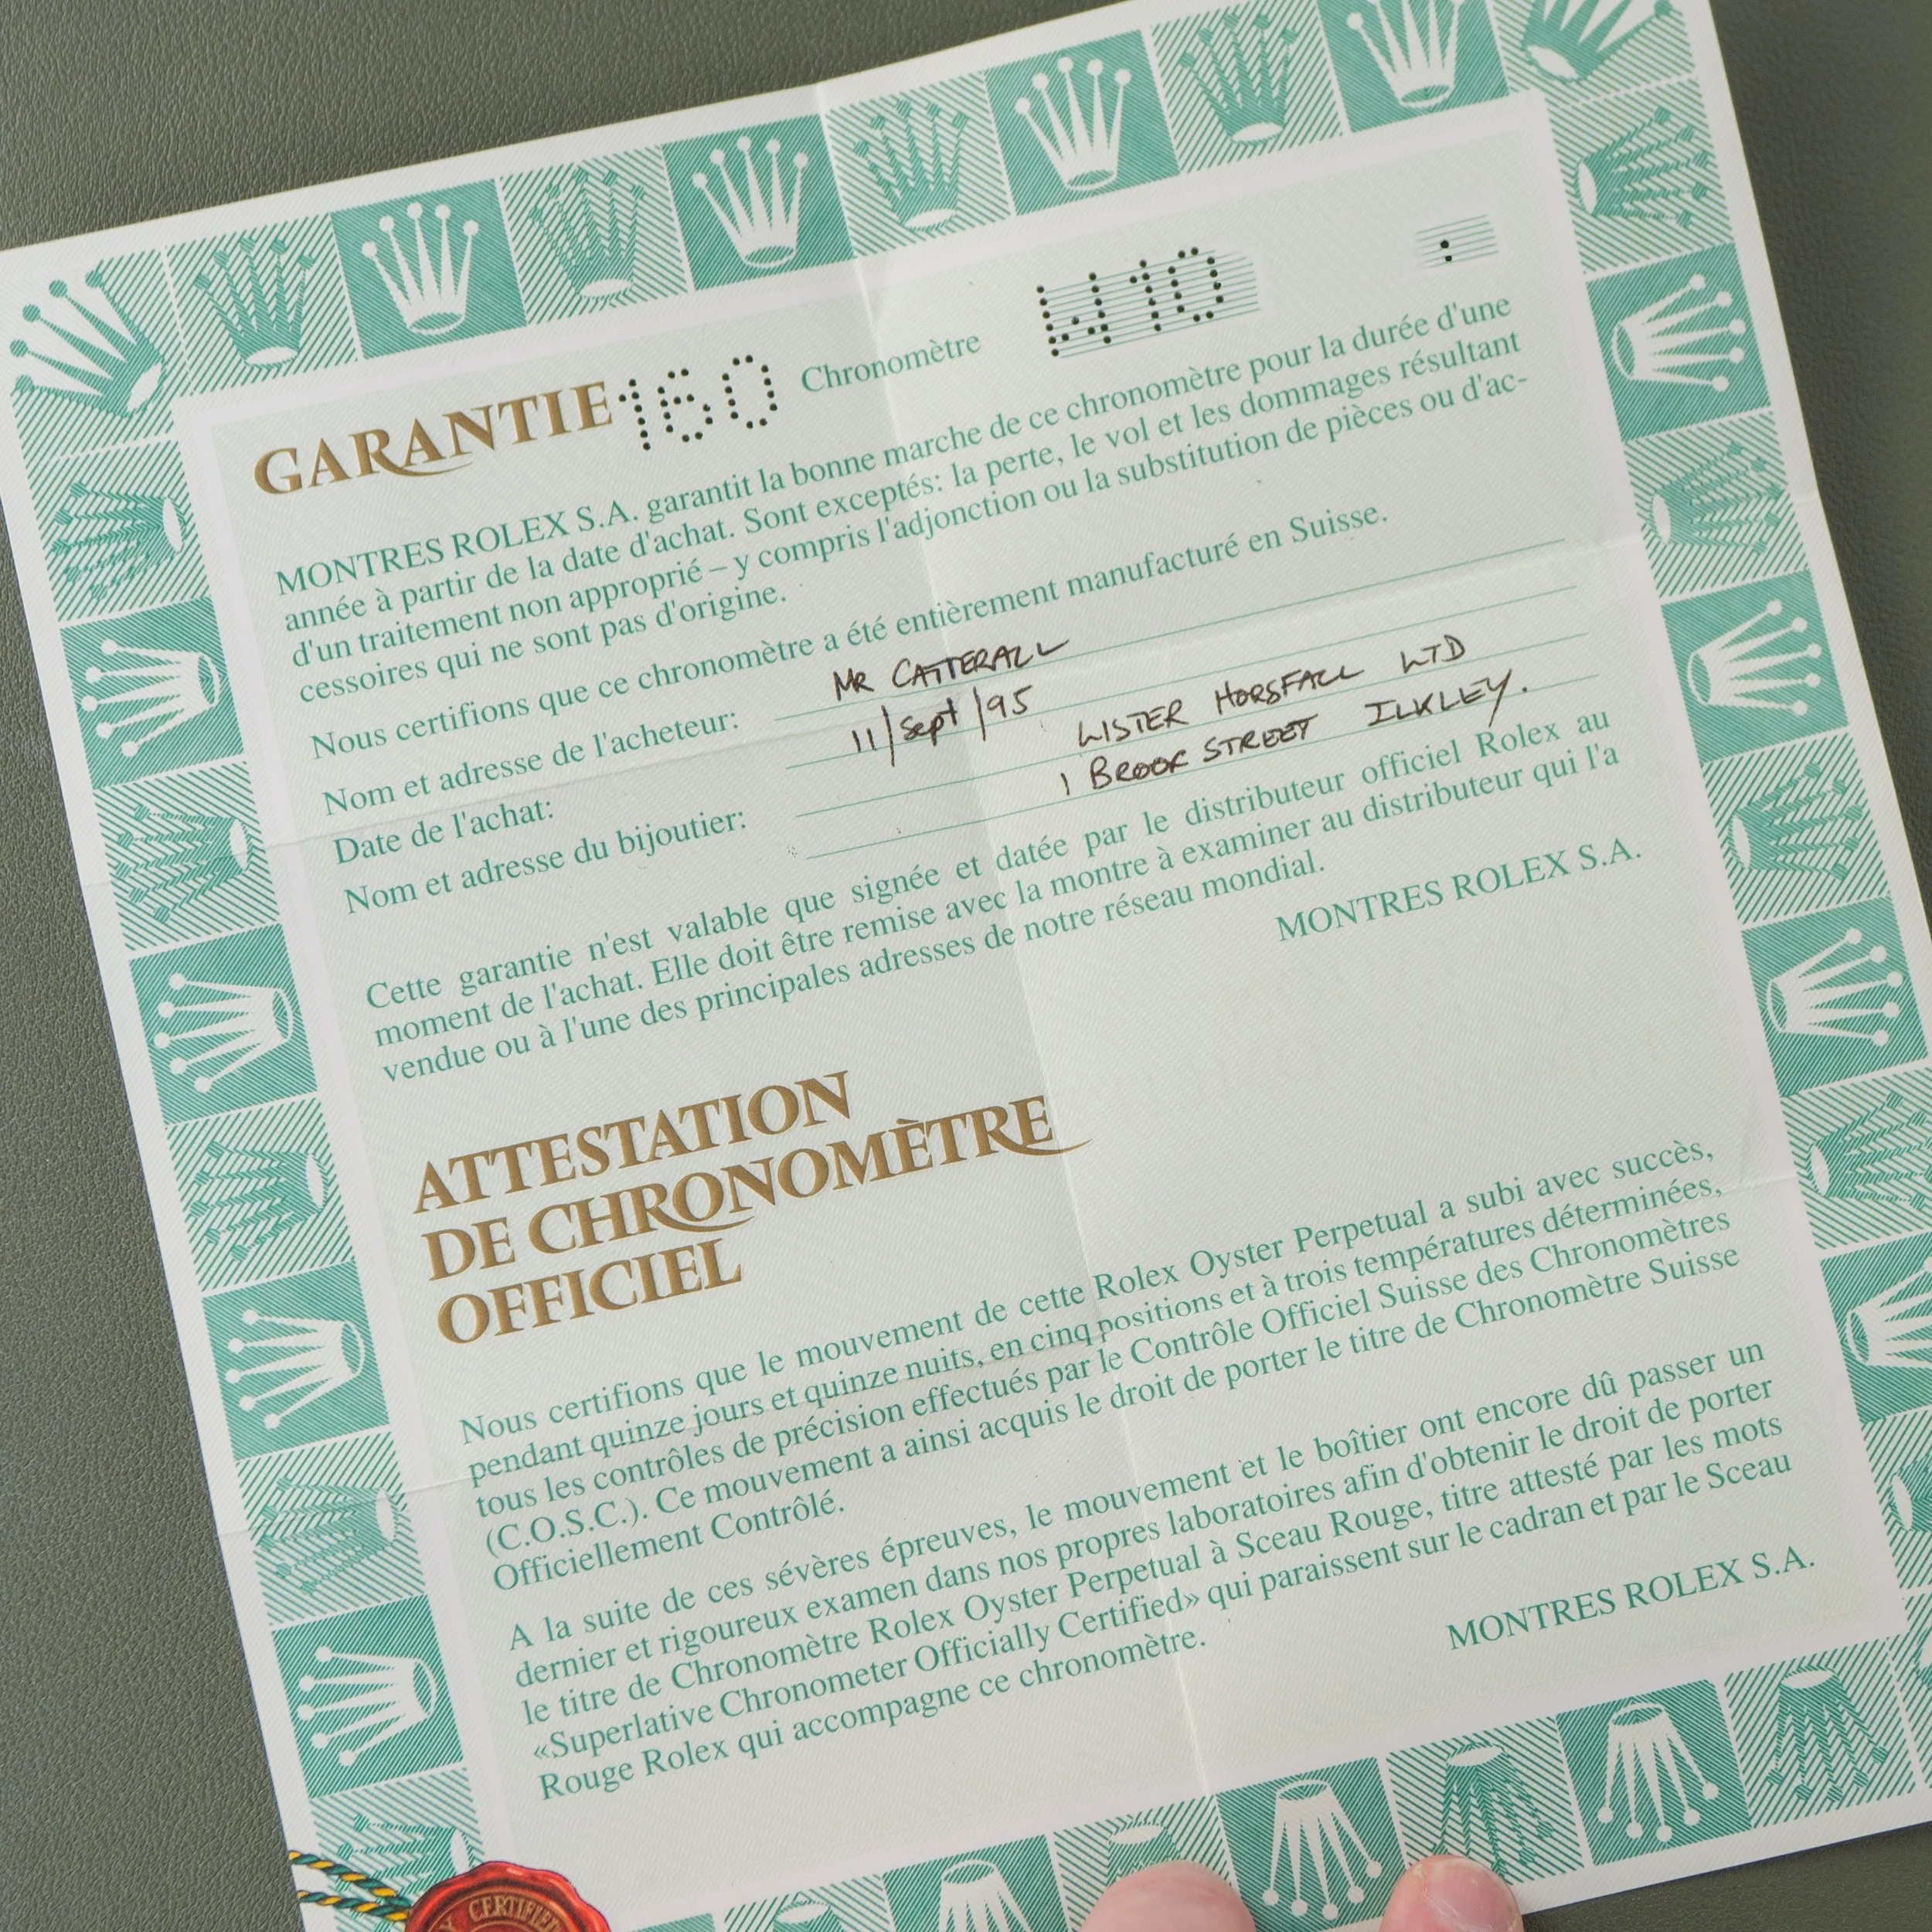 GARANTIE 160 Chronomètre W10
MONTRES ROLEX S.A. garantit la bonne marche de ce chronomètre pour la durée d'une
année à partir de la date d'achat. Sont exceptés: la perte, le vol et les dommages résultant
d'un traitement non approprié – y compris l'adjonction ou la substitution de pièces ou d'ac-
cessoires qui ne sont pas d'origine.
Nous certifions que ce chronomètre a été entièrement manufacturé en Suisse.
Nom et adresse de l'acheteur: MR CATTERALL
Date de l'achat: 11/Sept/95
Nom et adresse du bijoutier: LISTER HORSFALL LTD
1 BROOK STREET ILKLEY.
Cette garantie n'est valable que signée et datée par le distributeur officiel Rolex au
moment de l'achat. Elle doit être remise avec la montre à examiner au distributeur qui l'a
vendue ou à l'une des principales adresses de notre réseau mondial.
MONTRES ROLEX S.A.
ATTESTATION
DE CHRONOMÈTRE
OFFICIEL
Nous certifions que le mouvement de cette Rolex Oyster Perpetual a subi avec succès,
pendant quinze jours et quinze nuits, en cinq positions et à trois températures déterminées,
tous les contrôles de précision effectués par le Contrôle Officiel Suisse des Chronomètres
(C.O.S.C.). Ce mouvement a ainsi acquis le droit de porter le titre de Chronomètre Suisse
Officiellement Contrôlé.
A la suite de ces sévères épreuves, le mouvement et le boîtier ont encore dû passer un
dernier et rigoureux examen dans nos propres laboratoires afin d'obtenir le droit de porter
le titre de Chronomètre Rolex Oyster Perpetual à Sceau Rouge, titre attesté par les mots
«Superlative Chronometer Officially Certified» qui paraissent sur le cadran et par le Sceau
Rouge Rolex qui accompagne ce chronomètre.
MONTRES ROLEX S.A.
CERTIFIED